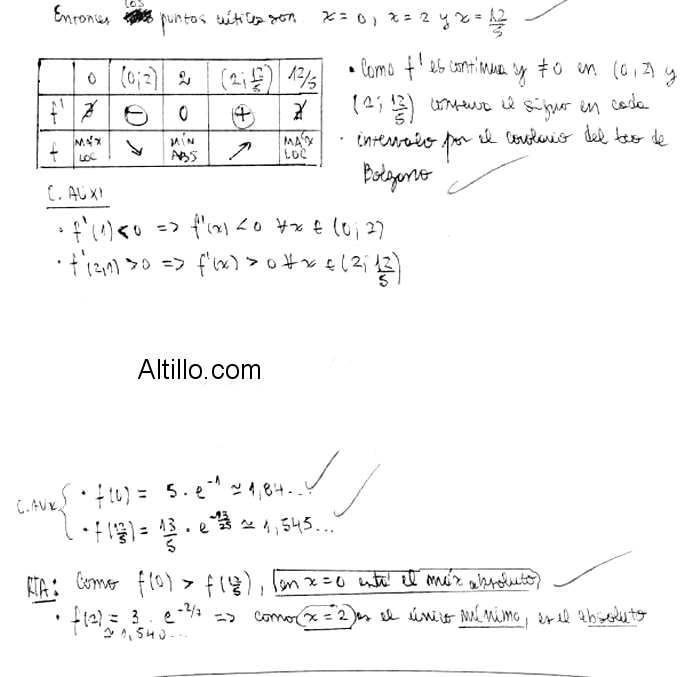 Entonces los puntos críticos son x = 0, x = 2 y x = 12/5
0 (0;2) 2 (2;12/5) 12/5
f' ∄ ⊖ 0 ⊕ ∄
f MÁX LOC ↘ MÍN ABS ↗ MÁX LOC
• Como f' es continua y ≠ 0 en (0,2) y
(2;12/5) conserva el signo en cada
• intervalo por el corolario del teo de
Bolzano
C. AUX
• f'(1) < 0 => f'(x) < 0 ∀x ∈ (0;2)
• f'(2,1) > 0 => f'(x) > 0 ∀x ∈ (2;12/5)
Altillo.com
C. AUX { • f(0) = 5 · e^-1 ≃ 1,84...
• f(12/5) = 13/5 · e^-13/25 ≃ 1,545...
RTA: Como f(0) > f(12/5), en x = 0 está el máx absoluto
• f(2) = 3 · e^-2/3 => como x = 2 es el único mínimo, es el absoluto
≃ 1,540...